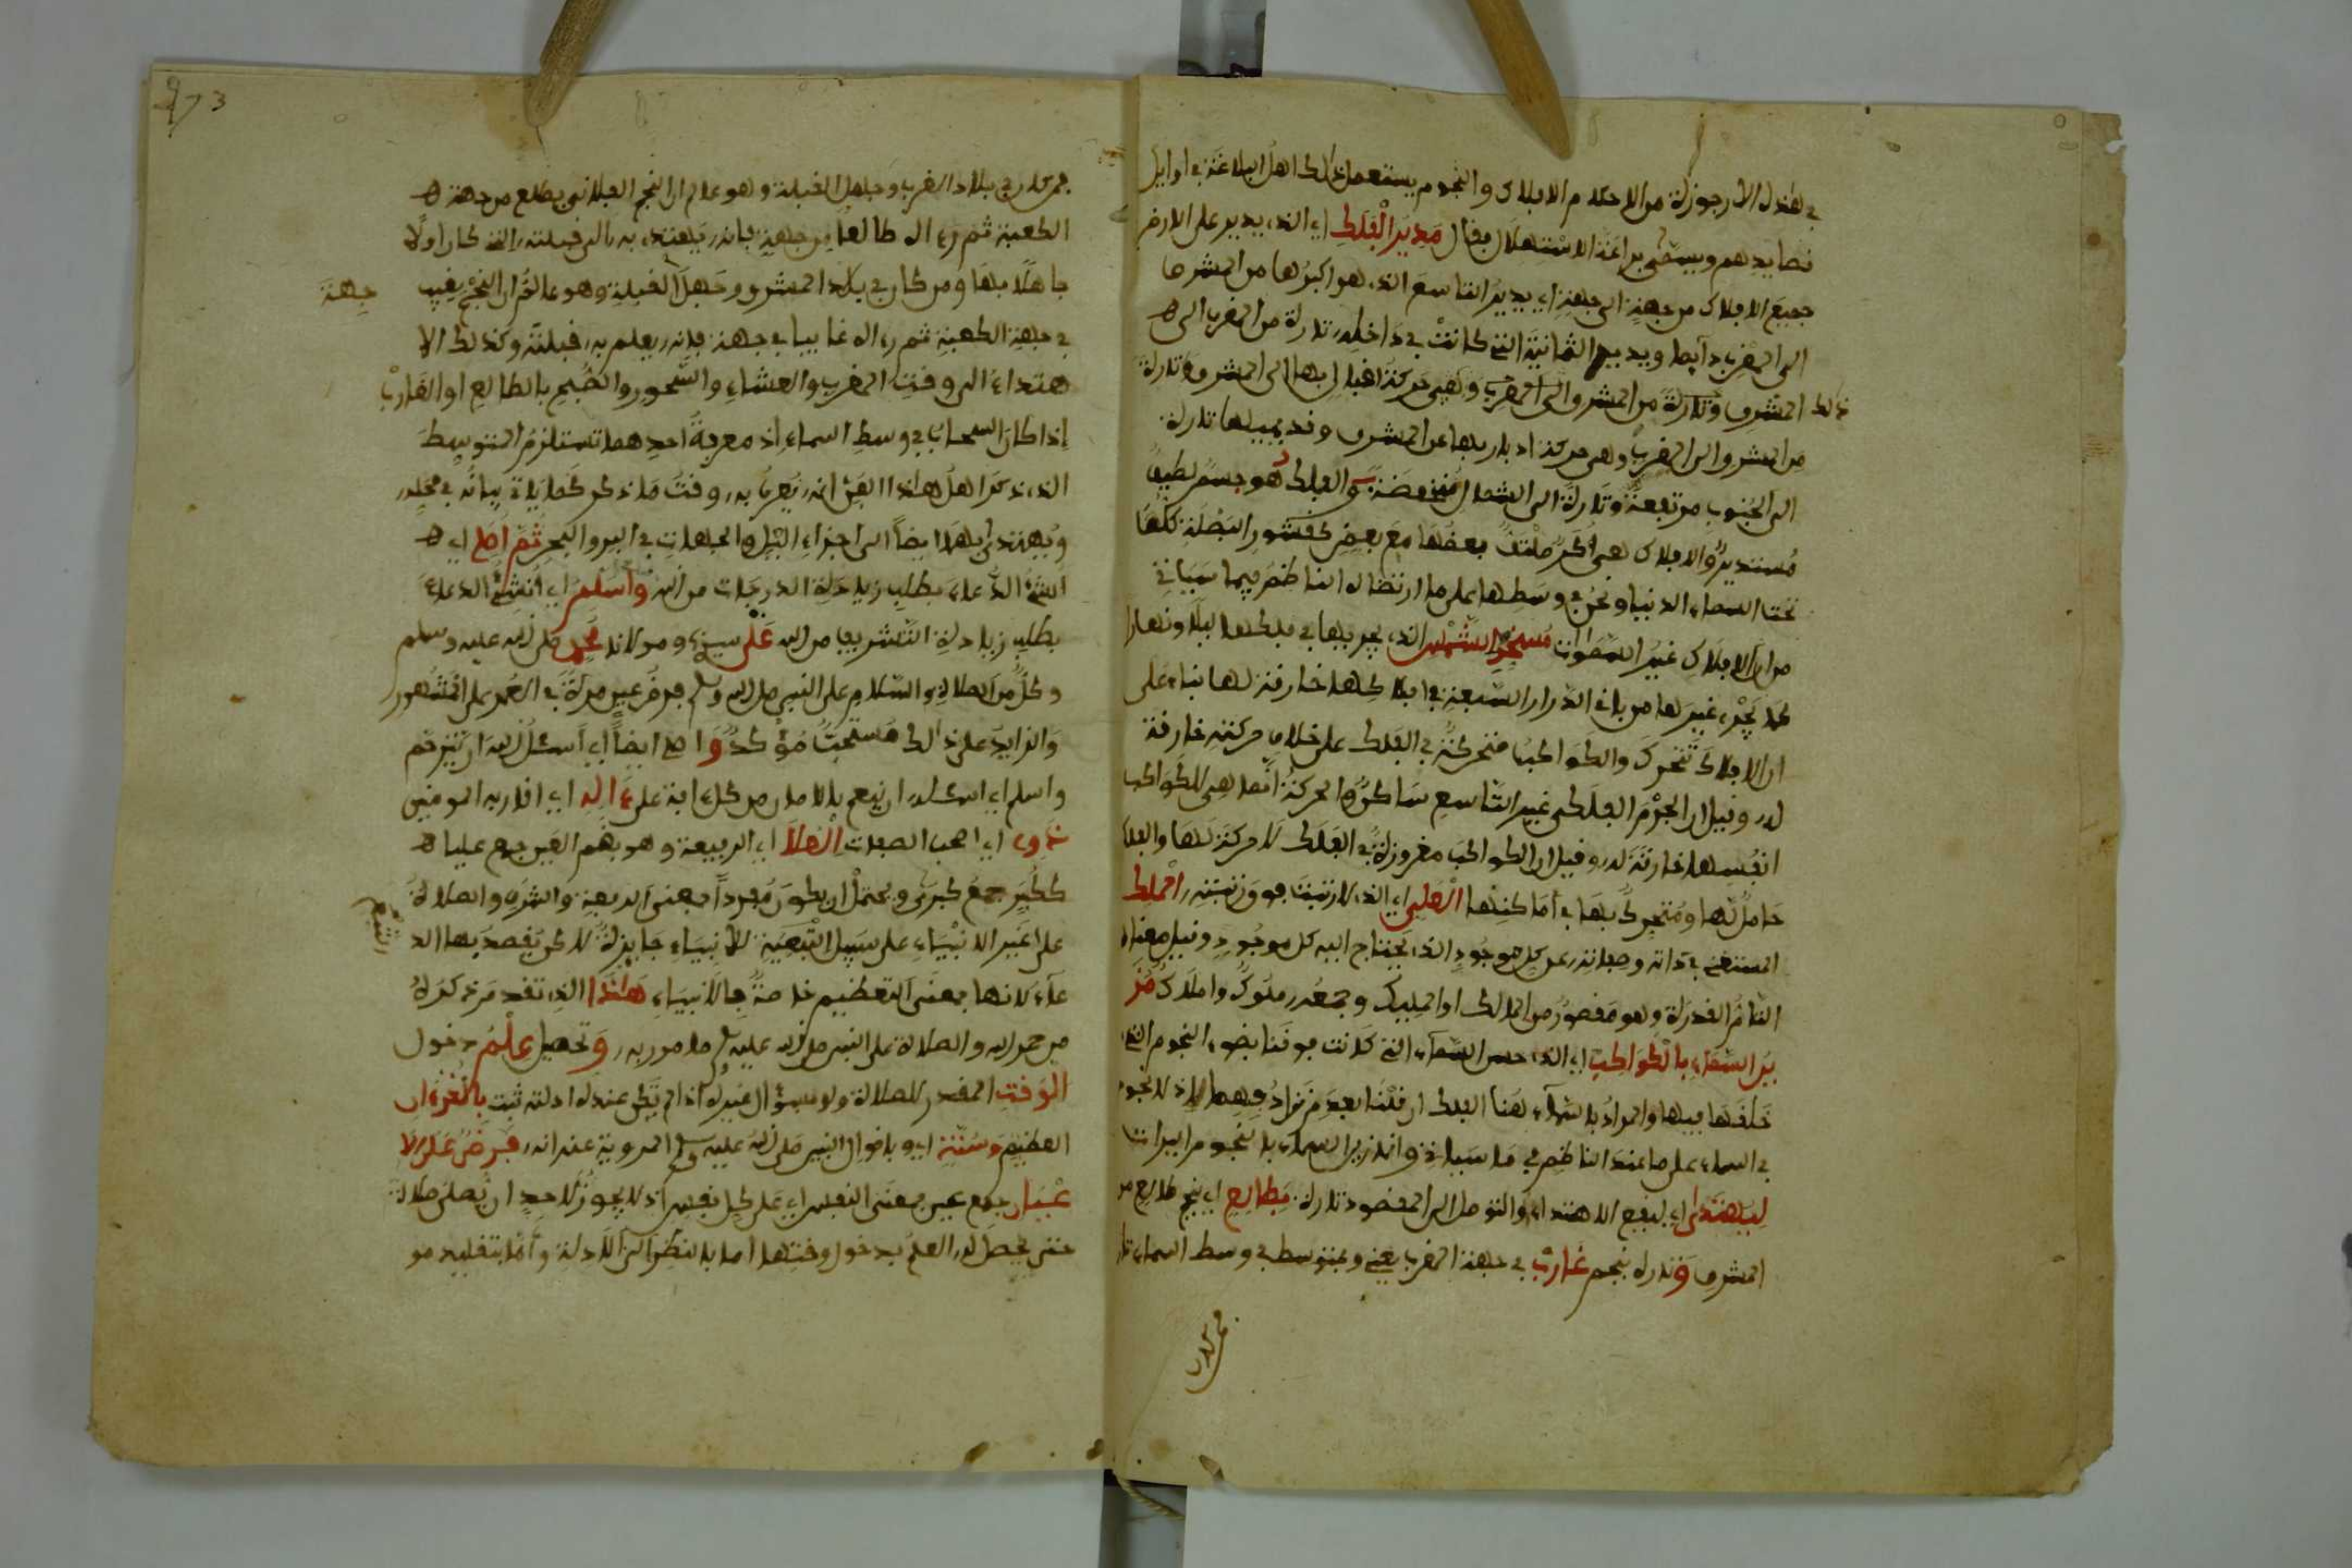 في هذه الارجوزة من الاحكام الافلاك والنجوم يستعمل ذالك اهل البلاغة في اوايل
قصايدهم ويسمى براعة الاستهلال فقال مدير الفلك اي الذي يدير على الارض
جميع الافلاك من جهة الى جهة اي يدير التاسع الذي هو اكبرها من المشرق
الى المغرب دايما ويدير الثمانية التي كانت في داخله تارة من المغرب الى
المشرق وتارة من المشرق الى المغرب وهي حركة اقبالها الى المشرق وتارة
ذالك
من المشرق الى المغرب وهي حركة ادبارها عن المشرق وقد يميلها تارة
الى الجنوب مرتفعة وتارة الى الشمال منخفضة والفلك هو جسم لطيف
مستدير والافلاك هي اكر ملتف بعضها مع بعض كقشور البصلة كلها
تحت السماء الدنيا ونحن في وسطها على ما ارتضاه الناظم فيما سياتي
من ان الافلاك غير السموات مسخر الشمس الذي يجريها في فلكها ليلا ونهارا
كما يجري غيرها من باقي الدرار السبعة في افلاكها خارقة لها بناء على
ان الافلاك تتحرك والكواكب متحركة في الفلك على خلاف حركته خارقة
له وقيل ان الجرم الفلكي غير التاسع ساكن والحركة انما هي للكواكب
انفسها خارقة له وقيل ان الكواكب مغروزة في الفلك لا حركة لها والفلك
حامل لها ومتحرك بها في اماكنها العلي اي الذي لا رتبة فوق رتبته الملك
المستغني في ذاته وصفاته عن كل موجود الذي يحتاج اليه كل موجود وقيل معناه
التام القدرة وهو مقصور من المالك او المليك وجمعه ملوك واملاك مز
ين السماء بالكواكب اي الذي حسن السماء التي كانت فوقنا بضوء النجوم التي
خلقها فيها والمراد بالسماء هنا الفلك
في السماء على ما عند الناظم في ما سياتي وانما زين السماء بالنجوم النيرات
ليهتدى اي ليقع الاهتداء والتوصل الى المقصود تارة بطالع اي بنجم طالع من
المشرق وتارة بنجم غارب في جهة المغرب يعني وبمتوسط في وسط السماء تارة
فمن كان
فمن كان في بلاد الغرب وجهل القبلة وهو عالم ان النجم الفلاني يطلع من جهة
الكعبة ثم رءاه طالعا من جهة فانه يهتدي به الى قبلته التي كان اولا
جاهلا بها ومن كان في بلاد المشرق وجهل القبلة وهو عالم ان النجم يغيب
جهة
في جهة الكعبة ثم رءاه غايبا في جهة فانه يعلم به قبلته وكذلك الا
هتداء الى وقت المغرب والعشاء والسحور والصبح بالطالع او الغارب
إذا كان السحاب في وسط السماء اذ معرفة احدهما تستلزم المتوسط
الذي ذكر اهل هاذا الفن انه يعرف به وقت ما ذكر كما ياتي بيانه في محله
ويهتدى بها ايضا الى اجزاء الليل والجهات في البر والبحر ثم اصلي اي
انشئ الدعاء بطلب زيادة الدرجات من الله واسلم اي انشئ الدعاء
بطلب زيادة التشريف من الله على سيدنا ومولانا محمد صلى الله عليه وسلم
وكل من الصلاة والسلام على النبي صلى الله وسلم فرض عين مرة في العمر على المشهور
والزايد على ذالك مستحب مؤكد واصلي ايضا اي اسئل الله ان يترحم
واسلم اي اسئله ان ينعم بالامان من كل ءافة على ءاله اي اقاربه المومنين
ذوي اي اصحب الصفات العلا اي الرفيعة وهو بضم العين جمع عليا
ككبر جمع كبرى ويحتمل ان يكون مفردا بمعنى الرفعة والشرف والصلاة
على غير الانبياء على سبيل التبعية للانبياء جايزة لاكن يقصد بها الد
عاء لانها بمعنى التعظيم خاصة بالانبياء هاذا الذي تقدم ذكره
من حمد الله والصلاة على النبي صلى الله عليه وسلم مامور به وتحصيل علم دخول
الوقت المقدر للصلاة ولو بسؤال غيره اذا لم تكن عنده ادلة ثبت بالقرءان
العظيم وسنة اي وباقوال النبي صلى الله عليه وسلم المروية عنه انه فرض على الا
عيان جمع عين بمعنى النفس اي على كل نفس اذ لا يجوز لاحد ان يصلي صلاة
حتى يحصل له العلم بدخول وقتها اما بالنظر الى الادلة واما بتقليد مو